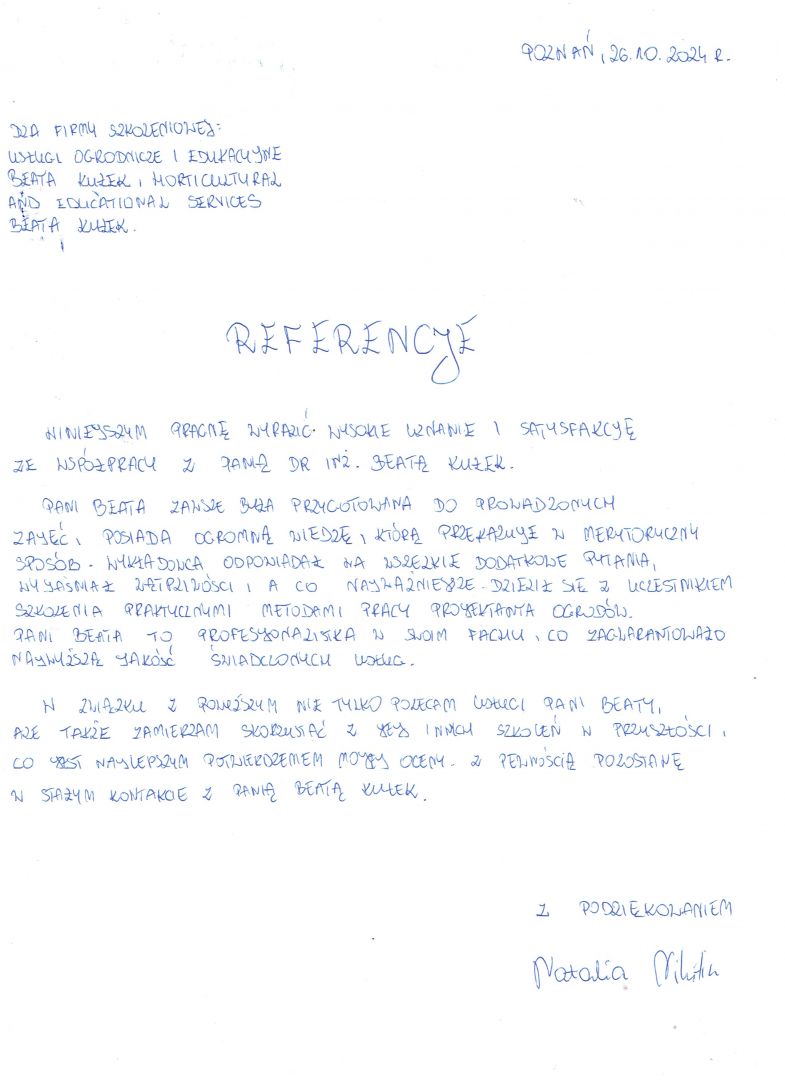 POZNAŃ, 26.10.2024 R.
DLA FIRMY SZKOLENIOWEJ:
USŁUGI OGRODNICZE I EDUKACYJNE
BEATA KUŁEK, HORTICULTURAL
AND EDUCATIONAL SERVICES
BEATA KUŁEK.
REFERENCJE
NINIEJSZYM PRAGNĘ WYRAZIĆ WYSOKIE UZNANIE I SATYSFAKCJĘ
ZE WSPÓŁPRACY Z PANIĄ DR INŻ. BEATĄ KUŁEK.
PANI BEATA ZAWSZE BYŁA PRZYGOTOWANA DO PROWADZONYCH
ZAJĘĆ, POSIADA OGROMNĄ WIEDZĘ, KTÓRĄ PRZEKAZUJE W MERYTORYCZNY
SPOSÓB. WYKŁADOWCA ODPOWIADAŁ NA WSZELKIE DODATKOWE PYTANIA,
WYJAŚNIAŁ WĄTPLIWOŚCI, A CO NAJWAŻNIEJSZE - DZIELIŁ SIĘ Z UCZESTNIKIEM
SZKOLENIA PRAKTYCZNYMI METODAMI PRACY PROJEKTANTA OGRODÓW.
PANI BEATA TO PROFESJONALISTKA W SWOIM FACHU, CO ZAGWARANTOWAŁO
NAJWYŻSZĄ JAKOŚĆ ŚWIADCZONYCH USŁUG.
W ZWIĄZKU Z POWYŻSZYM NIE TYLKO POLECAM USŁUGI PANI BEATY,
ALE TAKŻE ZAMIERZAM SKORZYSTAĆ Z JEJ INNYCH SZKOLEŃ W PRZYSZŁOŚCI,
CO JEST NAJLEPSZYM POTWIERDZENIEM MOJEJ OCENY. Z PEWNOŚCIĄ POZOSTANĘ
W STAŁYM KONTAKCIE Z PANIĄ BEATĄ KUŁEK.
Z PODZIĘKOWANIEM
Natalia Nikitin